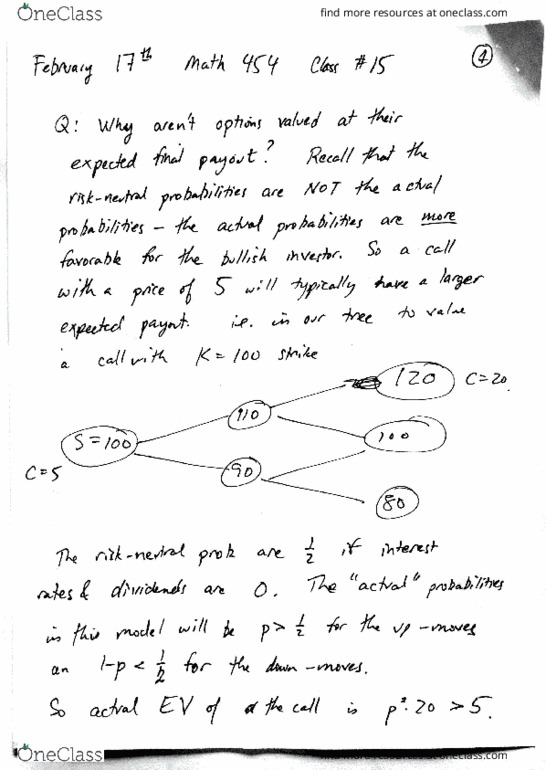 OneClass
find more resources at oneclass.com
February 17th Math 454 Class #15
1
Q: Why aren't options valued at their
expected final payout? Recall that the
risk-neutral probabilities are NOT the actual
probabilities – the actual probabilities are more
favorable for the bullish investor. So a call
with a price of 5 will typically have a larger
expected payout. i.e. in our tree to value
a call with K = 100 strike
120 C=20
110
100
S=100
C=5
90
80
The risk-neutral prob are 1/2 if interest
rates & dividends are 0. The "actual" probabilities
in this model will be p > 1/2 for the up-moves
an 1-p < 1/2 for the down-moves.
So actual EV of the call is p²·20 > 5.
OneClass
find more resources at oneclass.com